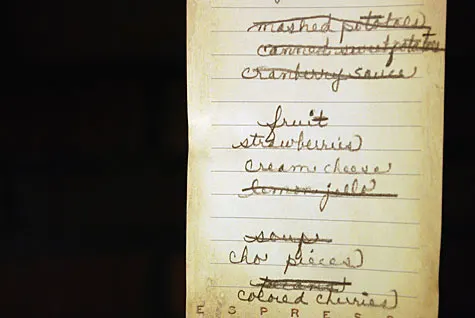 mashed potatoes
canned sweet potatoes
cranberry sauce
fruit
strawberries
cream cheese
lemon jello
soup
pieces
colored cherries
ESPRESS